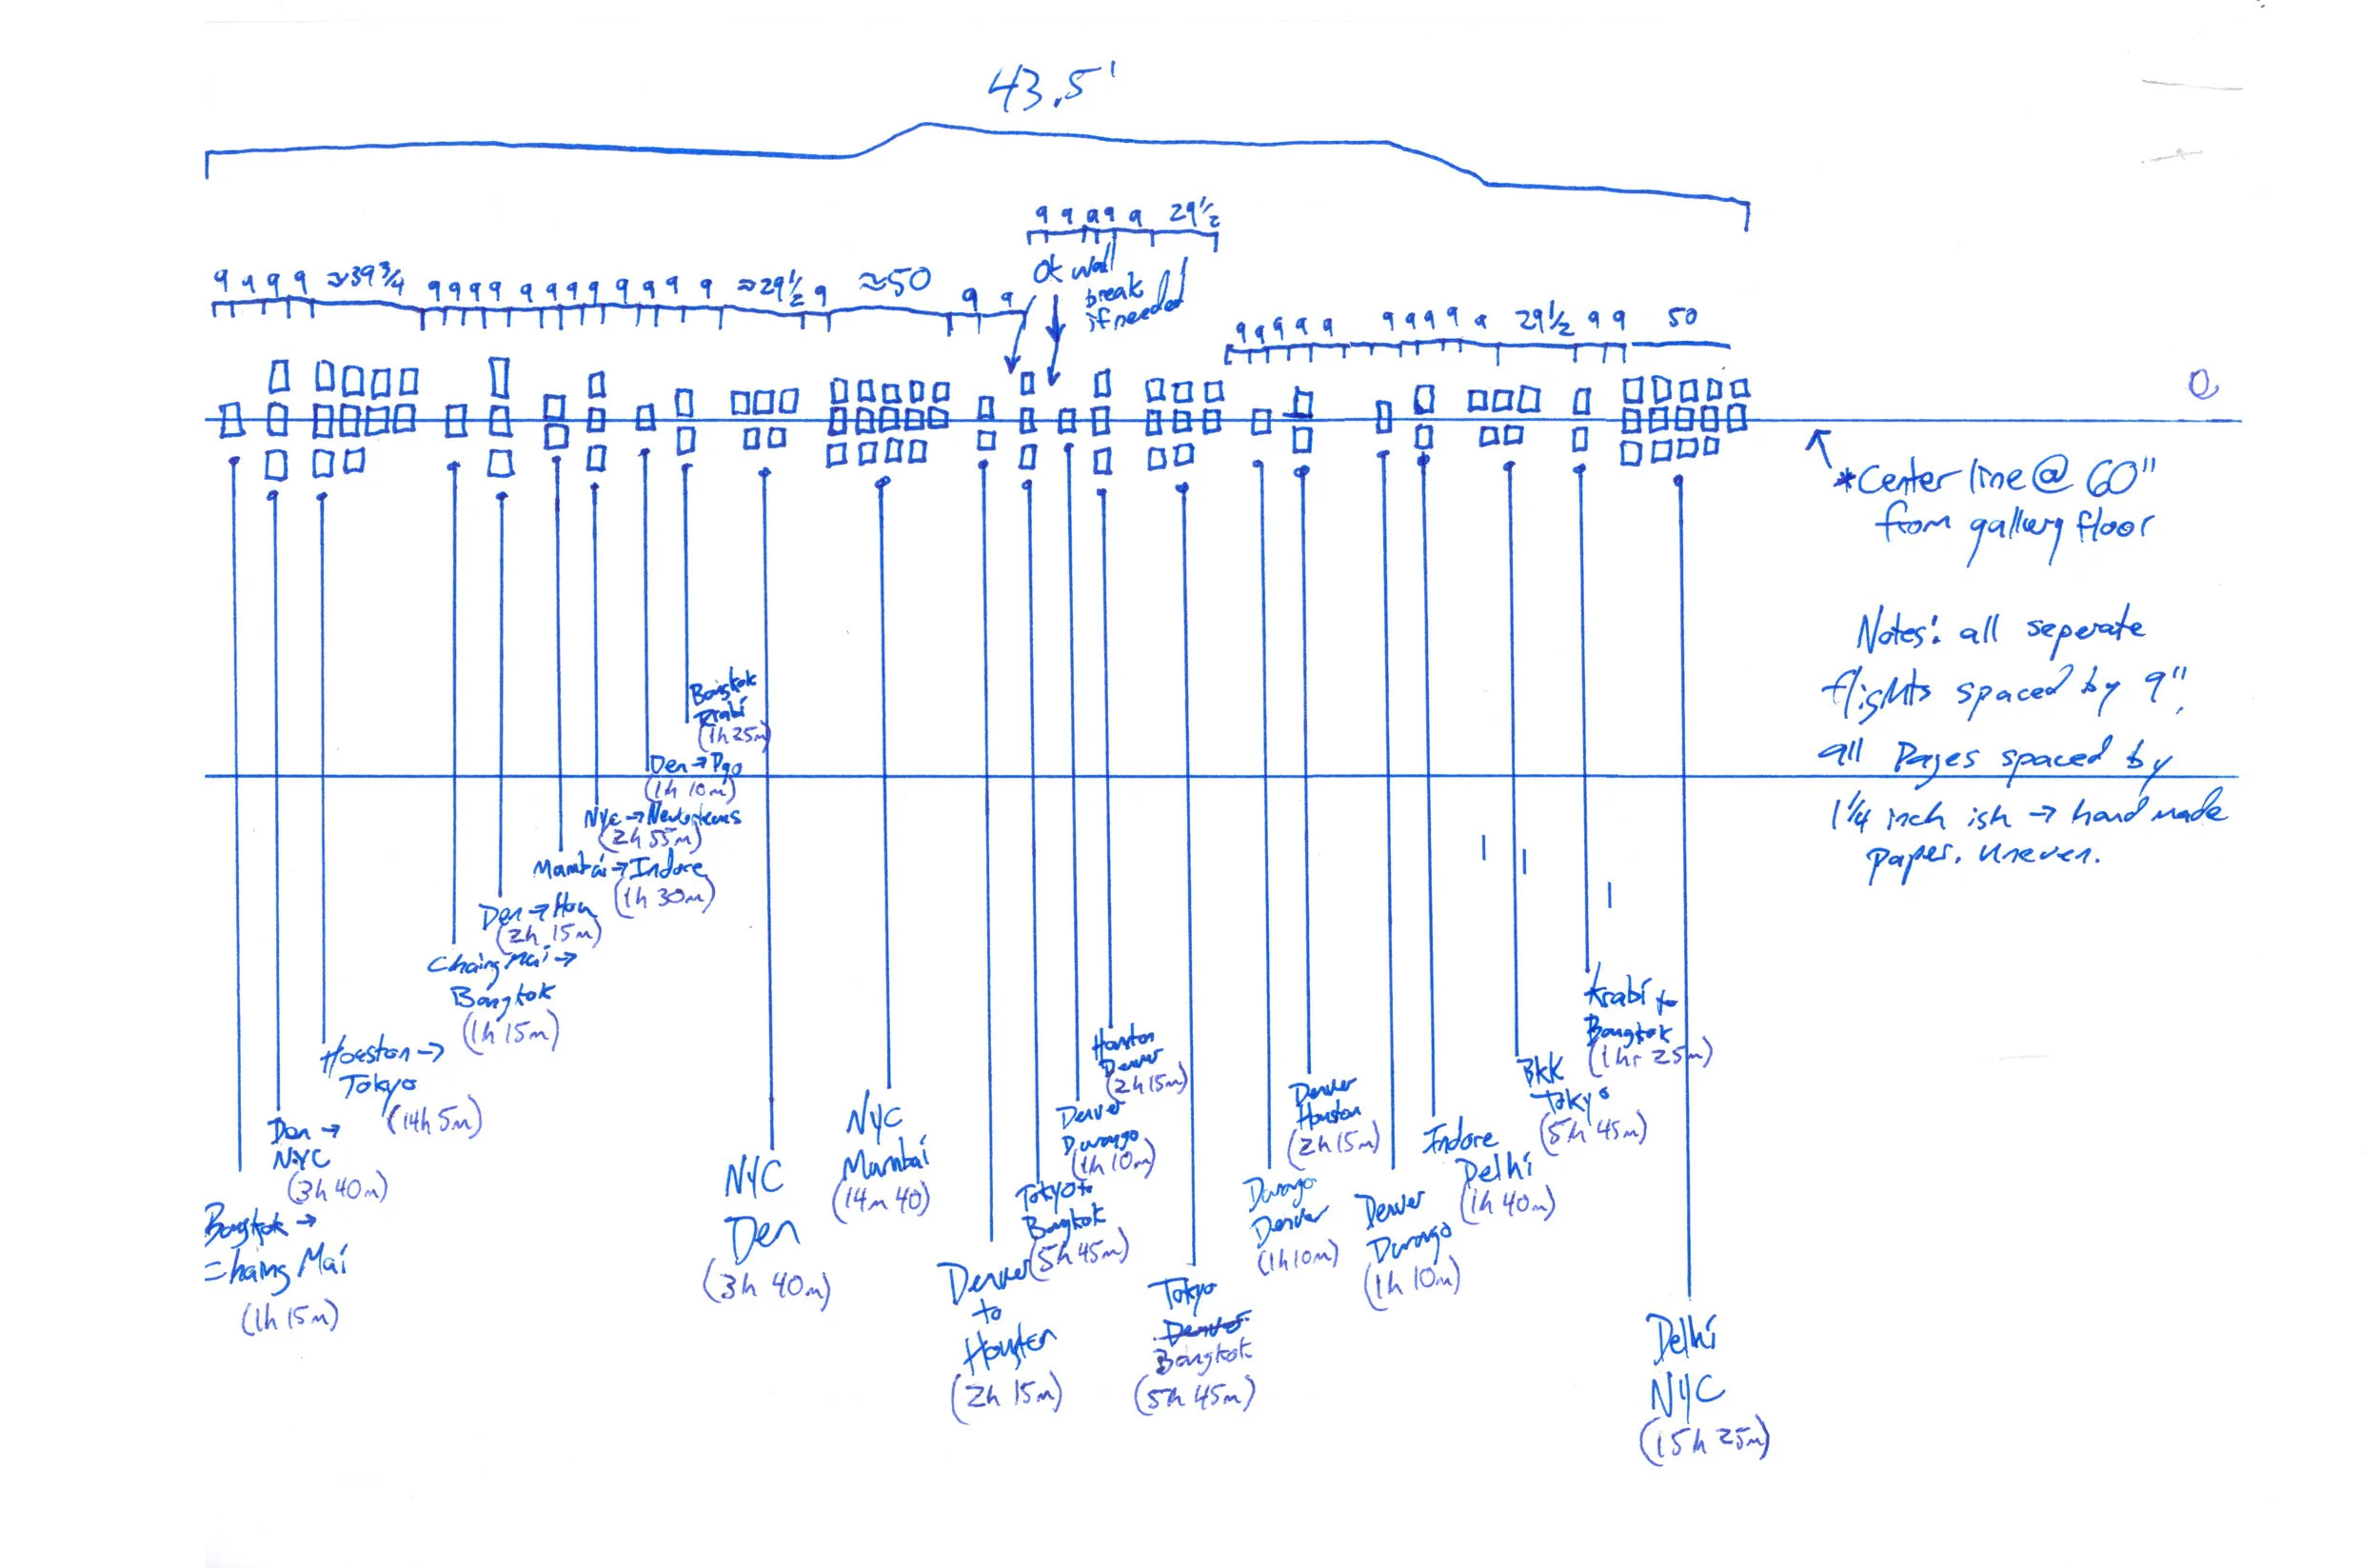 43.5'
9 9 9 9 9 29½
9 9 9 9 ≈39¾ 9 9 9 9 9 9 9 9 9 9 9 9 ≈29½ 9 ≈50 9 9
Ok wall
break
if needed
9 9 9 9 9 9 9 9 9 9 29½ 9 9 50
*Center line @ 60"
from gallery floor
Notes: all seperate
flights spaced by 9".
all Pages spaced by
1¼ inch ish → hand made
paper. uneven.
Bangkok
Krabi
(1h 25m)
Den → Dgo
(1h 10m)
Nyc → New Orleans
(2h 55m)
Mambai → Indore
(1h 30m)
Den → Hou
(2h 15m)
Chaing Mai →
Bangkok
(1h 15m)
Houston →
Tokyo
(14h 5m)
Den →
NYC
(3h 40m)
Bangkok →
Chaing Mai
(1h 15m)
NYC
Den
(3h 40m)
NYC
Mumbai
(14m 40)
Denver
to
Houston
(2h 15m)
Tokyo to
Bangkok
(5h 45m)
Denver
Durango
(1h 10m)
Houston
Denver
(2h 15m)
Tokyo
Denver
Bangkok
(5h 45m)
Durango
Denver
(1h 10m)
Denver
Houston
(2h 15m)
Denver
Durango
(1h 10m)
Indore
Delhi
(1h 40m)
BKK
Tokyo
(5h 45m)
Krabi to
Bangkok
(1hr 25m)
Delhi
NYC
(15h 25m)